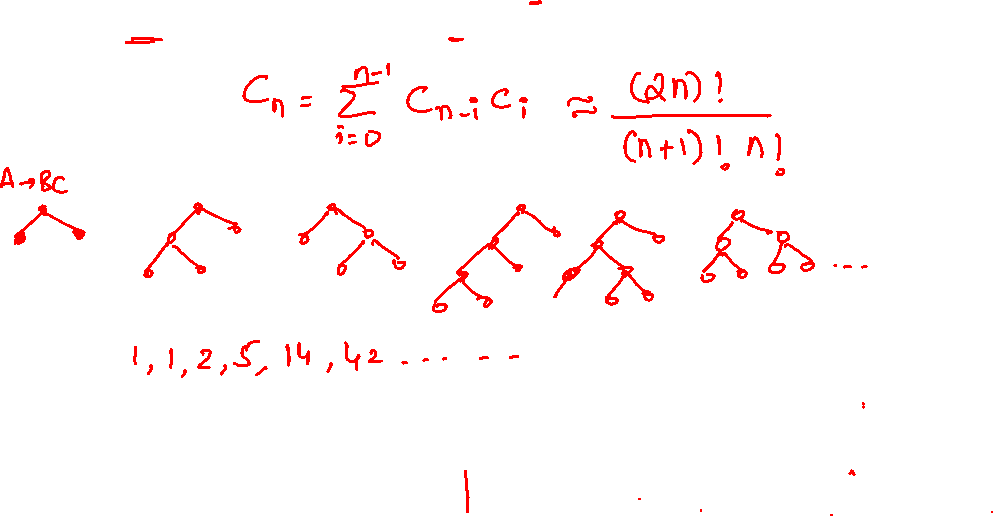 C_n = \sum_{i=0}^{n-1} C_{n-i} C_i ≈ \frac{(2n)!}{(n+1)! n!}
A→BC
...
1, 1, 2, 5, 14, 42 ........